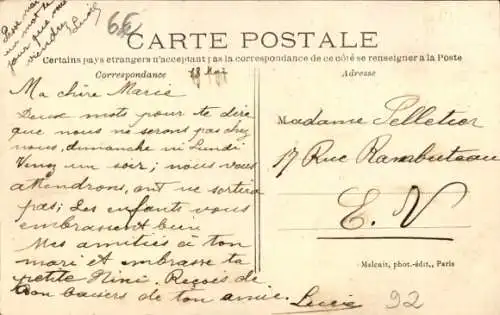 Laisse moi
un mot te
pour que vous
viendrez
Lucie
66
CARTE POSTALE
Certains pays étrangers n'acceptant pas la correspondance de ce côté se renseigner à la Poste
Correspondance
18 Mai
Adresse
Ma chère Marie
Deux mots pour te dire
que nous ne serons pas chez
nous, dumanche ni Lundi
Venez un soir; nous vous
attendrons, ont ne sortira
pas; Les enfants vous
embrassent bien
Mes amitiés à ton
mari et embrasse ta
petite Nini. Reçois de
bon baisers de ton amie.
Lucie
Madame Pelletier
17 Rue Rambuteau
E. V
Malcuit, phot.-édit., Paris
92